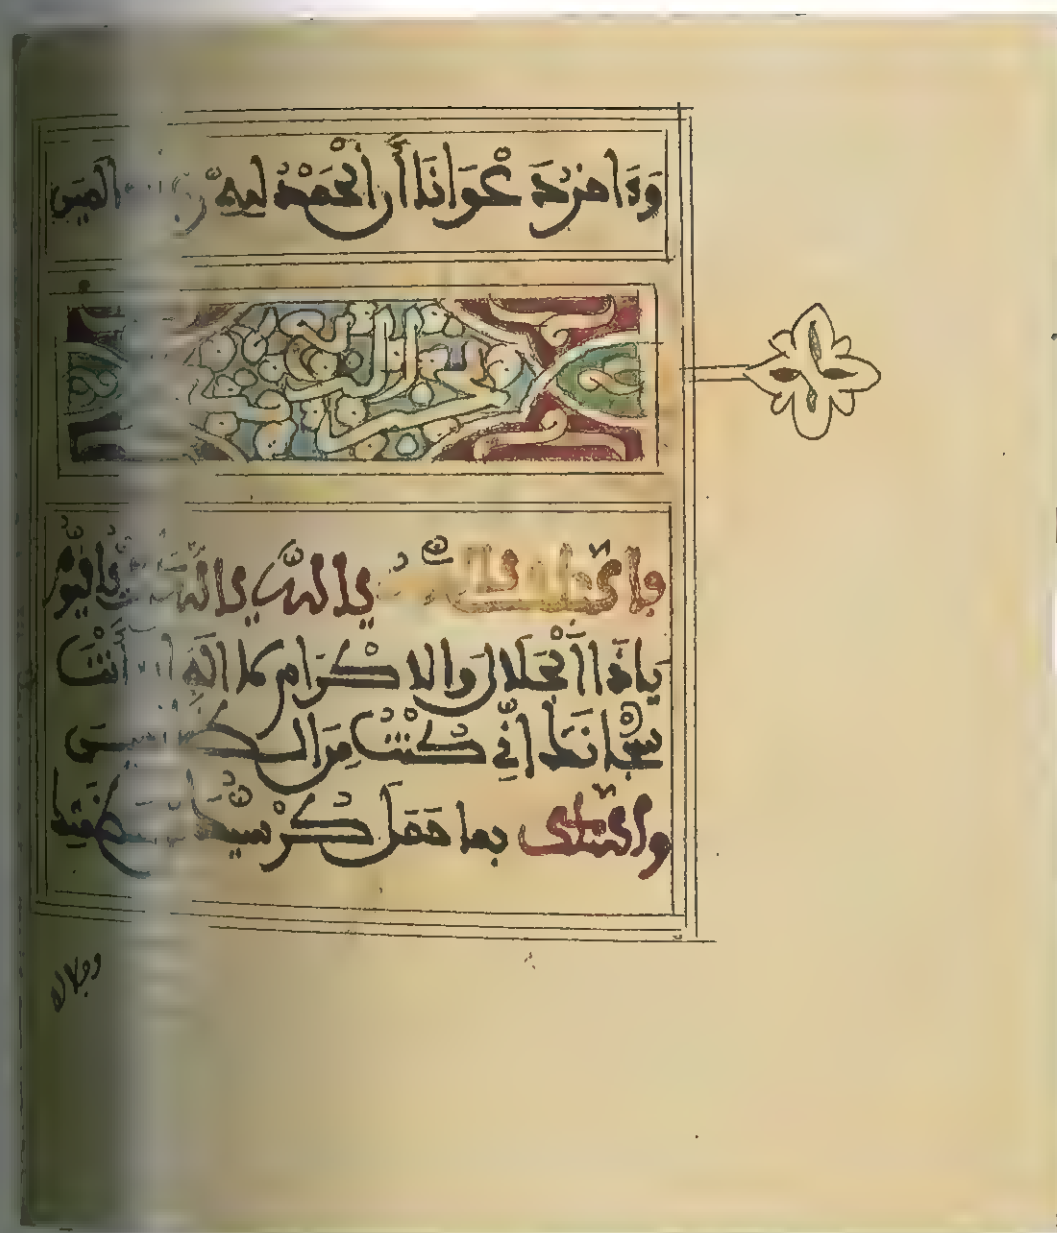 وءاخر دعوانا أن الحمد لله رب العالمين
يا الله يا الله يا حي يا قيوم
ياذا الجلال والاكرام لا اله الا انت
سبحانك اني كنت من الظالمين
واسئلك بما حمل كرسيك من عظمتك
وجلالك